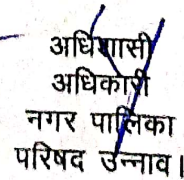 अधिशासी
अधिकारी
नगर पालिका
परिषद उन्नाव।